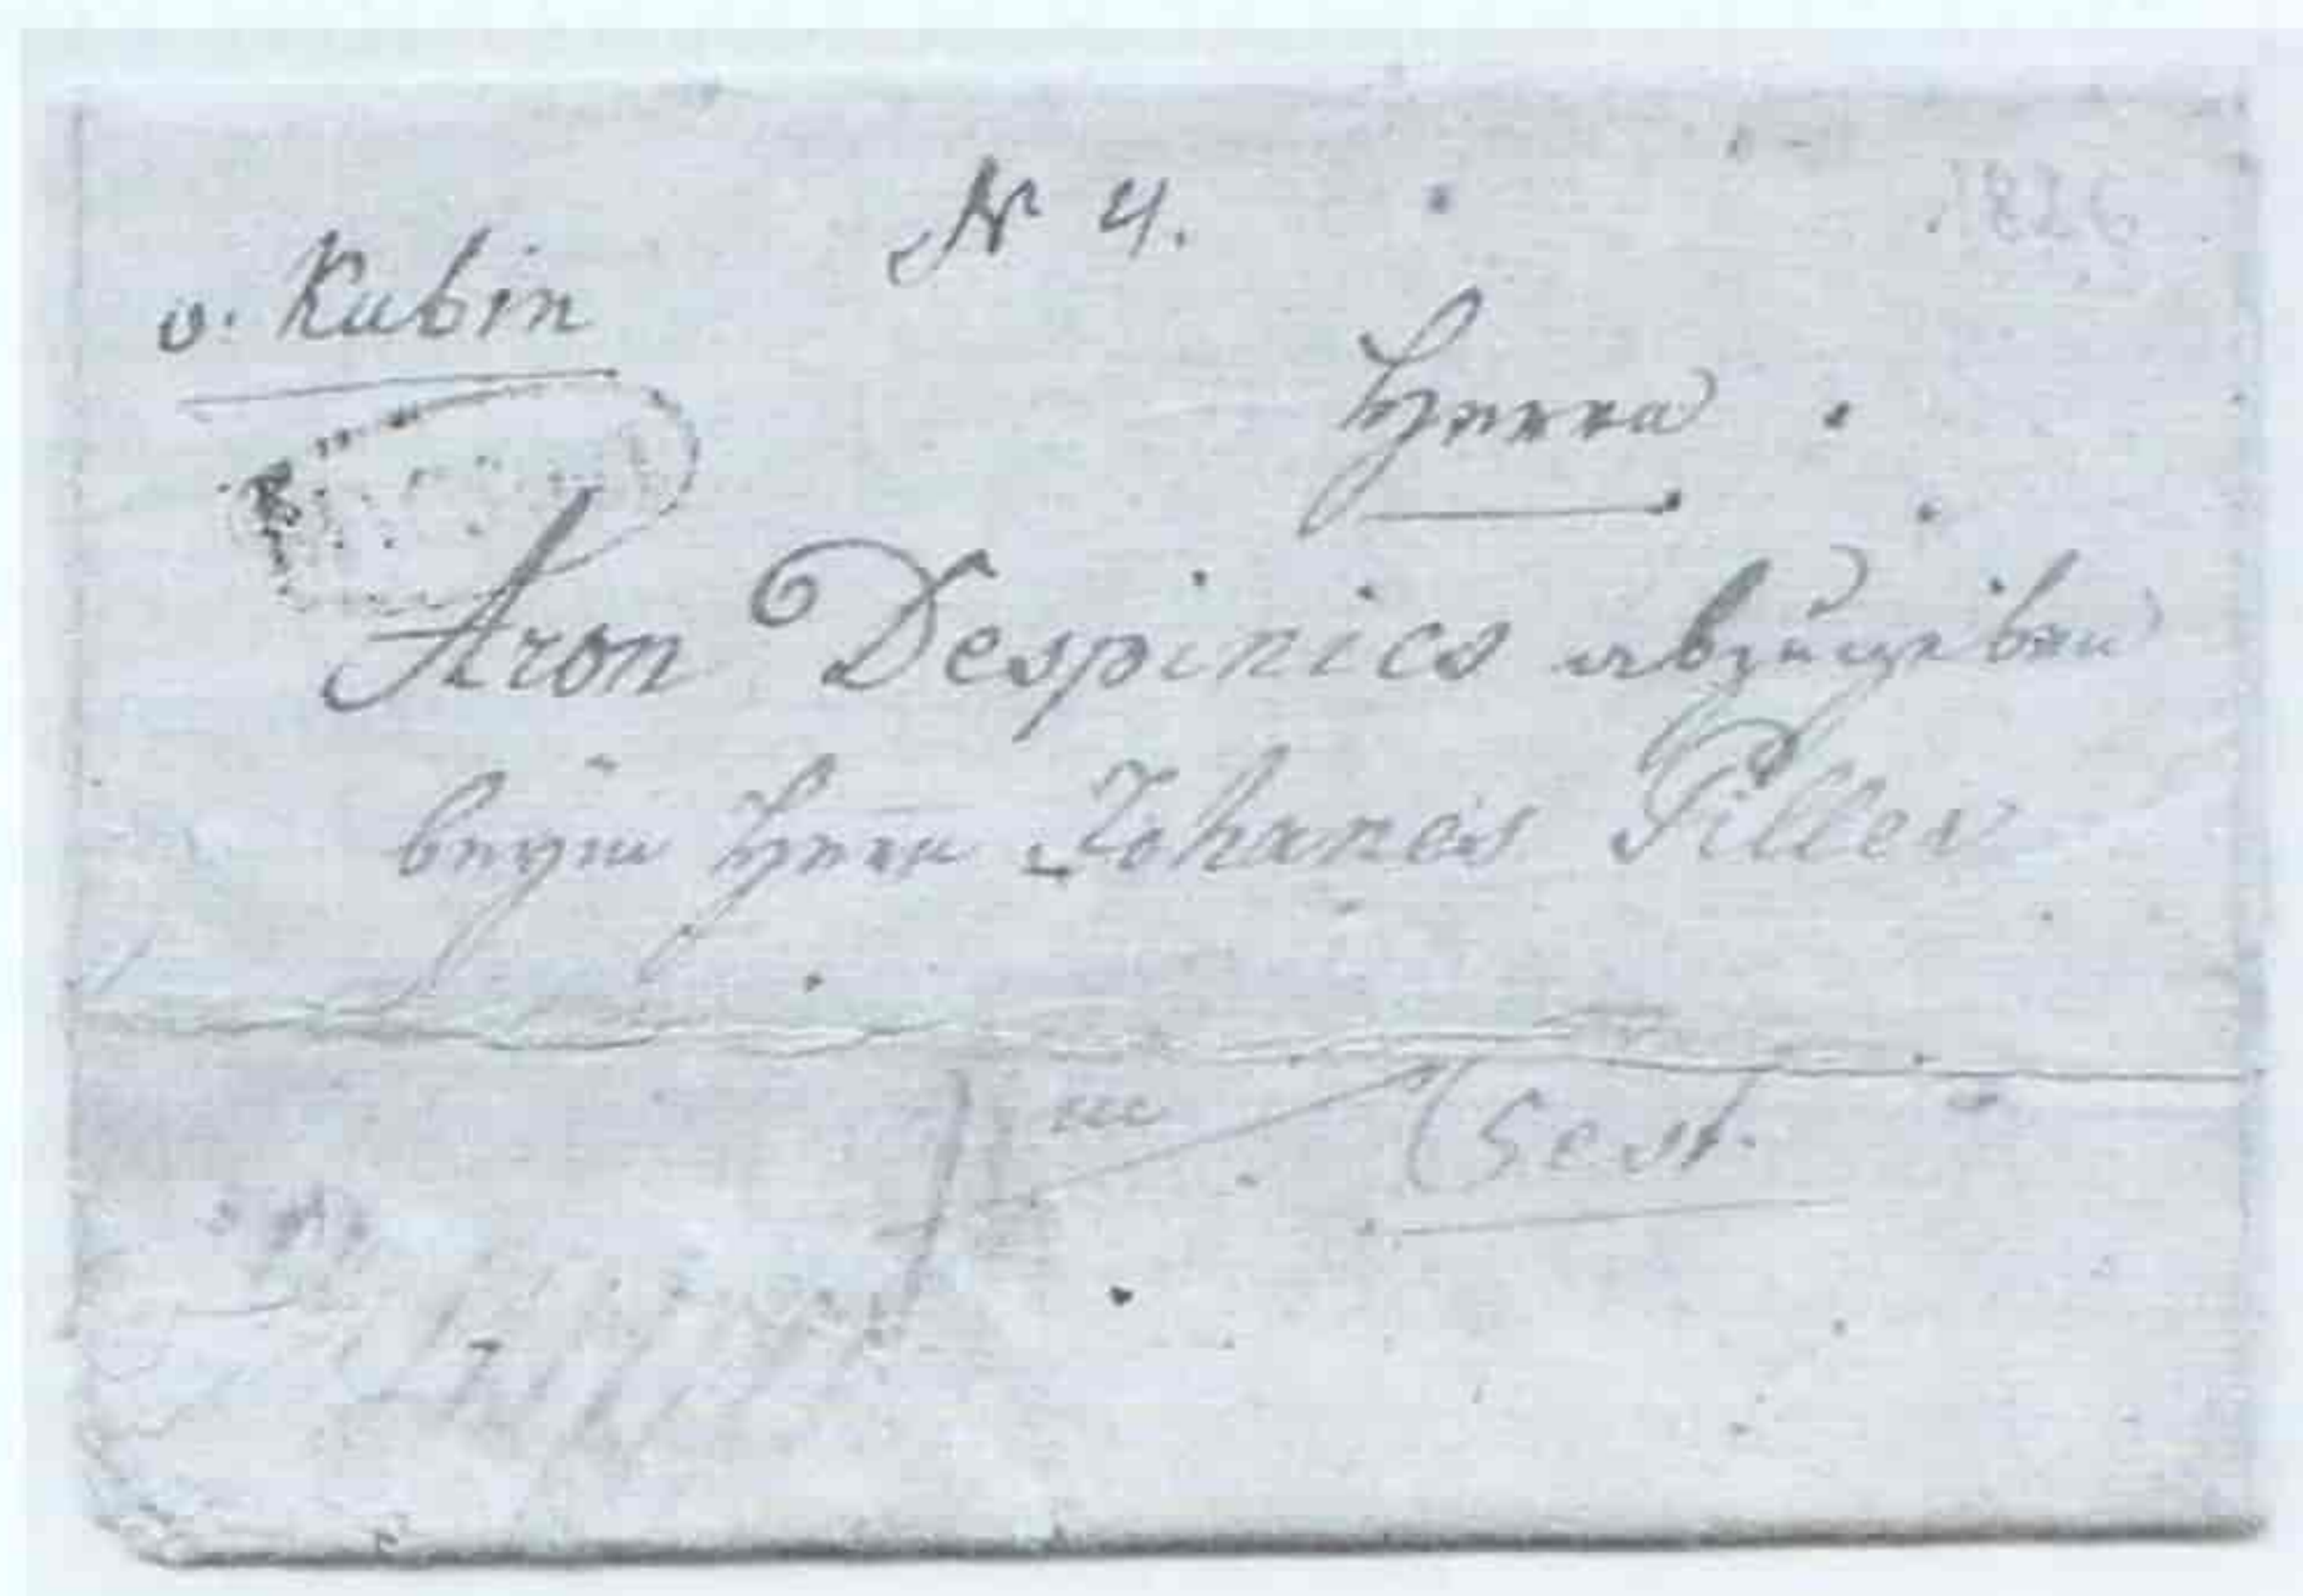 N 4.
1826
v. Kubin
Herrn
Aron Despinics abzugeben
beym Herrn Johanes Piller
in Pest.